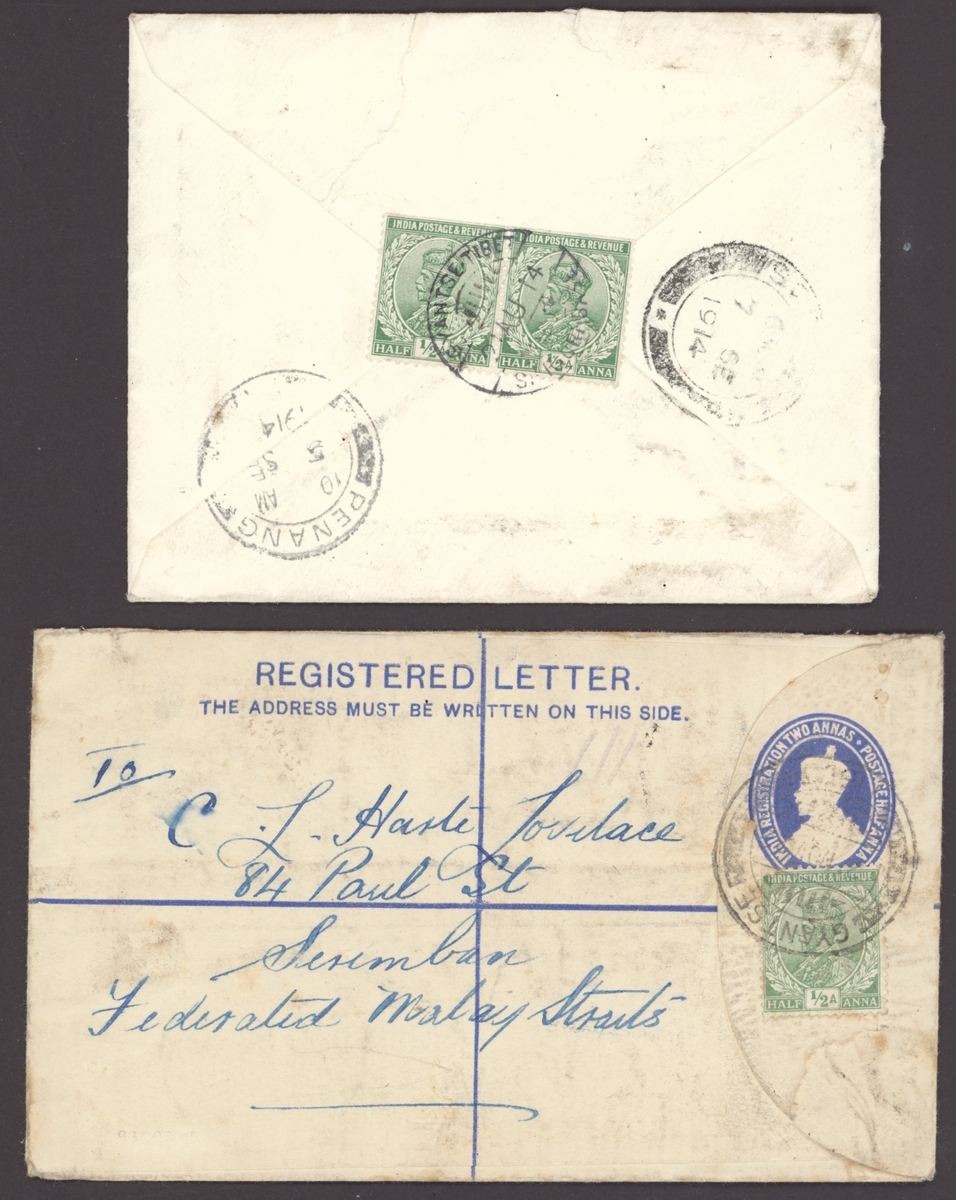 INDIA POSTAGE & REVENUE
INDIA POSTAGE & REVENUE
HALF 1/2A ANNA
HALF 1/2A ANNA
GYANTSE TIBET
AU 14
7
SE
1914
PENANG
10 AM
5 SE
1914
REGISTERED LETTER.
THE ADDRESS MUST BE WRITTEN ON THIS SIDE.
To
C L Harte Lovelace
84 Paul St
Seremban
Federated Malay Straits
INDIA REGISTRATION TWO ANNAS • POSTAGE HALF ANNA
INDIA POSTAGE & REVENUE
HALF 1/2A ANNA
GYANTSE